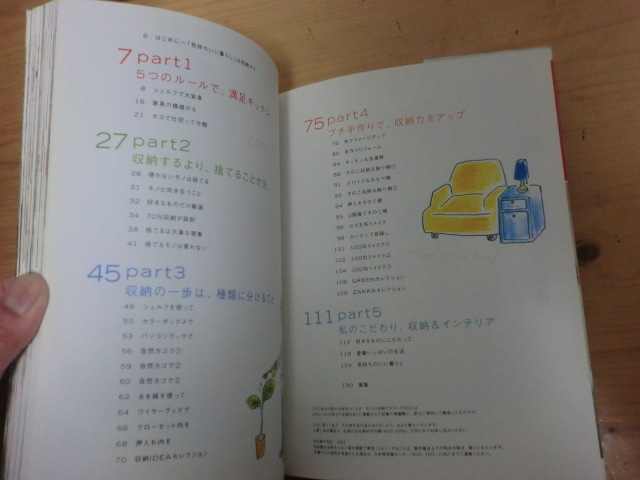 6 はじめに～「気持ちいい暮らし」は収納から
7 part1
5つのルールで、満足キッチン
8 シェルフで大変身
16 家具の模様がえ
21 カゴで仕切って分類
27 part2
収納するより、捨てることから
28 使わないモノは捨てる
31 モノと向き合うこと
32 好きなものだけ厳選
34 70%収納が鉄則
38 捨てるは大事な要素
41 捨てるモノは買わない
45 part3
収納の一歩は、種類に分けること
46 シェルフを使って
50 カラーボックスで
53 パソコンラックで
56 自然カゴで①
59 自然カゴで②
60 自然カゴで③
62 あき箱を使って
64 ワイヤーグッズで
66 クローゼット内を
68 押入れ内を
70 収納IDEAセレクション
75 part4
プチ手作りで、収納力をアップ
86 キッチンも洗濯機
88 すのこ収納&飾り棚①
91 スパイス&たなべ棚
92 すのこ収納&飾り棚②
94 押入れすのこ棚
95 2段重てすのこ棚
96 カゴを布リメイク
98 カーテンで目隠し
101 100均リメイク①
102 100均リメイク②
104 100均リメイク③
106 GREENセレクション
108 ZAKKAセレクション
111 part5
私のこだわり、収納&インテリア
112 好きなものにこだわって
118 愛着いっぱいの生活
124 気持ちのいい暮らし
130 索引